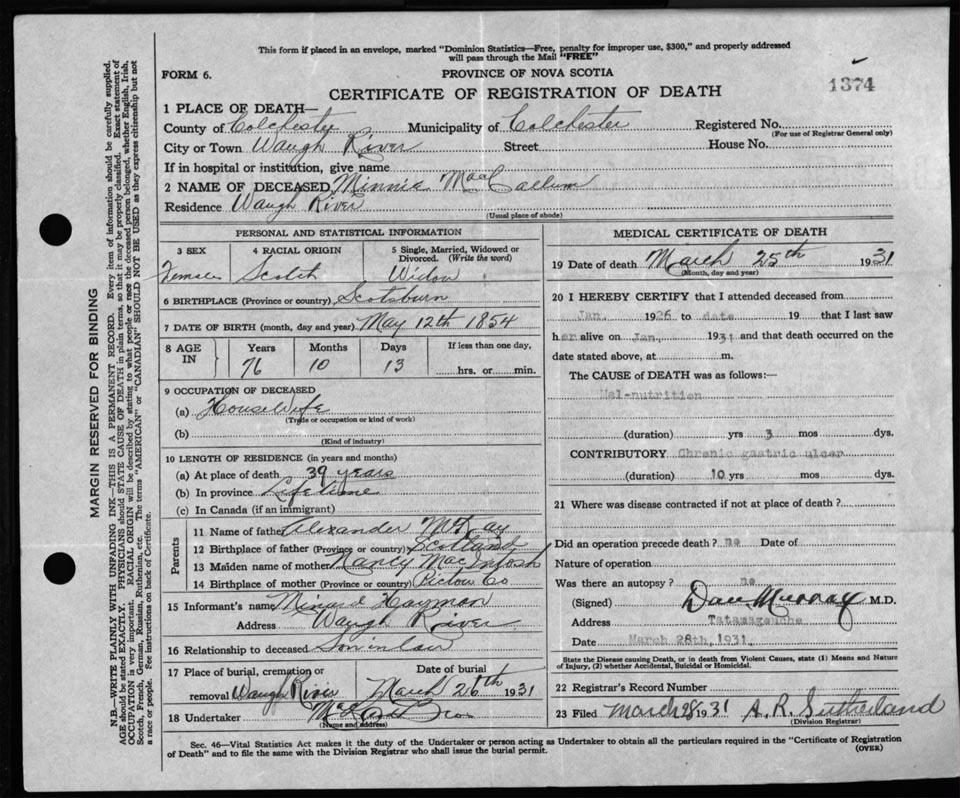 This form if placed in an envelope, marked "Dominion Statistics—Free, penalty for improper use, $300," and properly addressed
will pass through the Mail "FREE"
FORM 6.
PROVINCE OF NOVA SCOTIA
1374
CERTIFICATE OF REGISTRATION OF DEATH
1 PLACE OF DEATH—
County of Colchester Municipality of Colchester Registered No.
(For use of Registrar General only)
City or Town Waugh River Street House No.
If in hospital or institution, give name
2 NAME OF DECEASED Minnie MacCallum
Residence Waugh River
(Usual place of abode)
PERSONAL AND STATISTICAL INFORMATION
3 SEX 4 RACIAL ORIGIN 5 Single, Married, Widowed or
Divorced. (Write the word)
Female Scotch Widow
6 BIRTHPLACE (Province or country) Scotsburn
7 DATE OF BIRTH (month, day and year) May 12th 1854
8 AGE IN Years Months Days If less than one day,
76 10 13 hrs. or min.
9 OCCUPATION OF DECEASED
(a) Housewife
(Trade or occupation or kind of work)
(b)
(Kind of industry)
10 LENGTH OF RESIDENCE (in years and months)
(a) At place of death 39 years
(b) In province Lifetime
(c) In Canada (if an immigrant)
Parents
11 Name of father Alexander McKay
12 Birthplace of father (Province or country) Scotland
13 Maiden name of mother Nancy MacIntosh
14 Birthplace of mother (Province or country) Pictou Co
15 Informant's name Minard Hayman
Address Waugh River
16 Relationship to deceased Son in law
17 Place of burial, cremation or Date of burial
removal Waugh River March 26th 1931
18 Undertaker Bros
(Name and address)
MEDICAL CERTIFICATE OF DEATH
19 Date of death March 25th 1931
(Month, day and year)
20 I HEREBY CERTIFY that I attended deceased from
Jan. 1926 to date 19 that I last saw
her alive on Jan., 1931 and that death occurred on the
date stated above, at m.
The CAUSE of DEATH was as follows:—
Mal-nutrition
(duration) yrs 3 mos dys.
CONTRIBUTORY Chronic gastric ulcer
(duration) 10 yrs mos dys.
21 Where was disease contracted if not at place of death?
Did an operation precede death? no Date of
Nature of operation
Was there an autopsy? no
(Signed) Dan Murray M.D.
Address Tatamagouche
Date March 28th, 1931.
State the Disease causing Death, or in death from Violent Causes, state (1) Means and Nature
of Injury, (2) whether Accidental, Suicidal or Homicidal.
22 Registrar's Record Number
23 Filed March 28 1931 A. R. Sutherland
(Division Registrar)
Sec. 46—Vital Statistics Act makes it the duty of the Undertaker or person acting as Undertaker to obtain all the particulars required in the "Certificate of Registration
of Death" and to file the same with the Division Registrar who shall issue the burial permit.
(OVER)
MARGIN RESERVED FOR BINDING
N.B.—WRITE PLAINLY WITH UNFADING INK—THIS IS A PERMANENT RECORD. Every item of information should be carefully supplied.
AGE should be stated EXACTLY. PHYSICIANS should STATE CAUSE OF DEATH in plain terms, so that it may be properly classified. Exact statement of
OCCUPATION is very important. RACIAL ORIGIN will be described by stating to what people or race the deceased person belonged, whether English, Irish,
Scotch, French, German, Russian, Ruthenian, etc. The terms "AMERICAN" or "CANADIAN" SHOULD NOT BE USED as they express citizenship but not
a race or people. See instructions on back of Certificate.